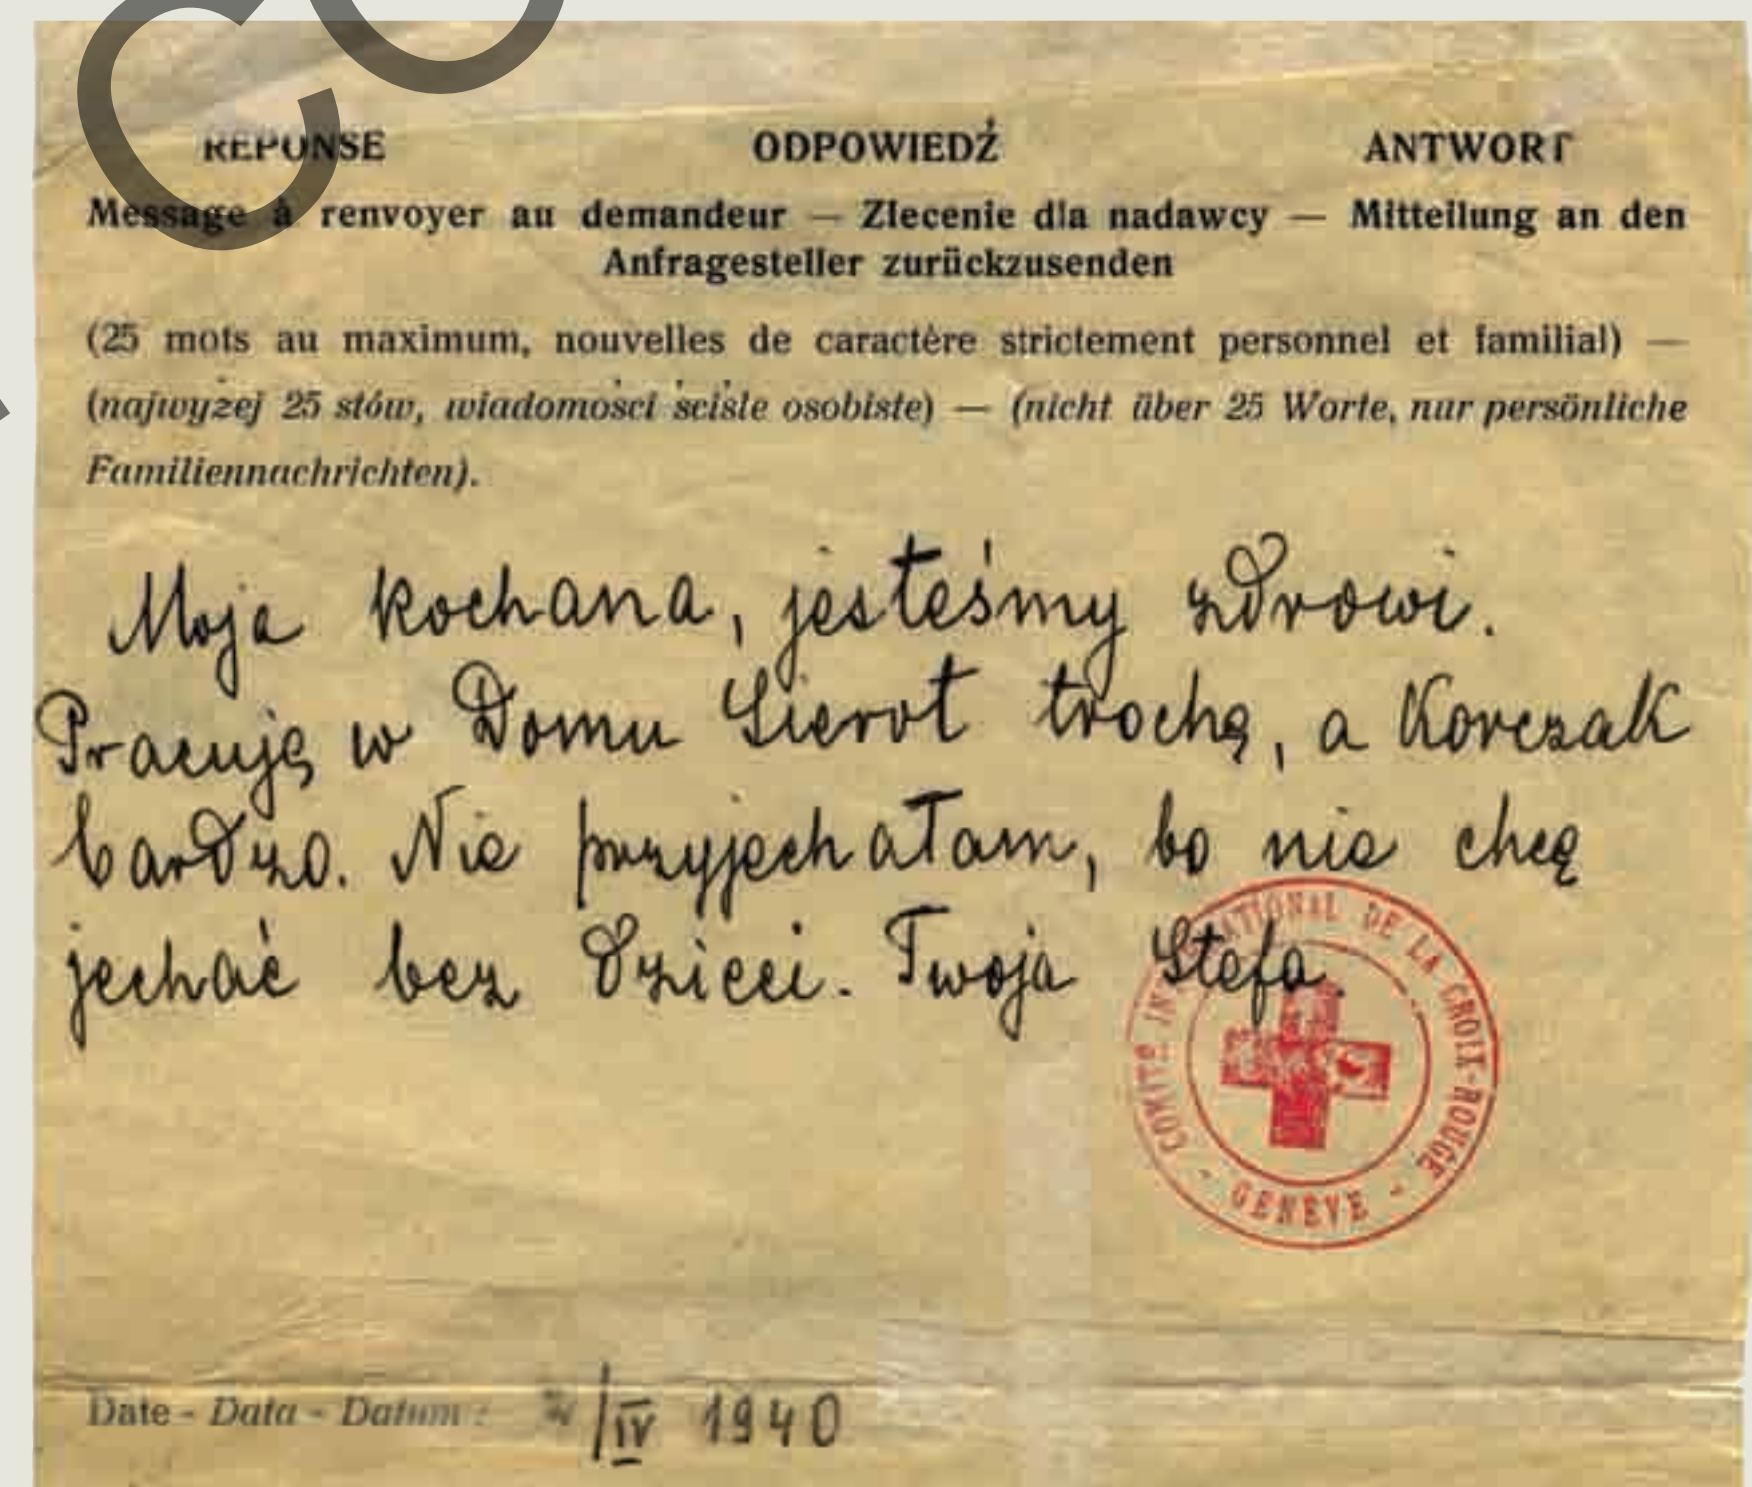 REPONSE ODPOWIEDŹ ANTWORT
Message à renvoyer au demandeur — Zlecenie dla nadawcy — Mitteilung an den
Anfragesteller zurückzusenden
(25 mots au maximum, nouvelles de caractère strictement personnel et familial) —
(najwyżej 25 stów, wiadomości ściśle osobiste) — (nicht über 25 Worte, nur persönliche
Familiennachrichten).
Moja kochana, jesteśmy zdrowi.
Pracuję w Domu Sierot trochę, a Korczak
bardzo. Nie przyjechałam, bo nie chcę
jechać bez dzieci. Twoja Stefa.
COMITÉ INTERNATIONAL DE LA CROIX-ROUGE
- GENÈVE -
Date - Data - Datum: /IV 1940